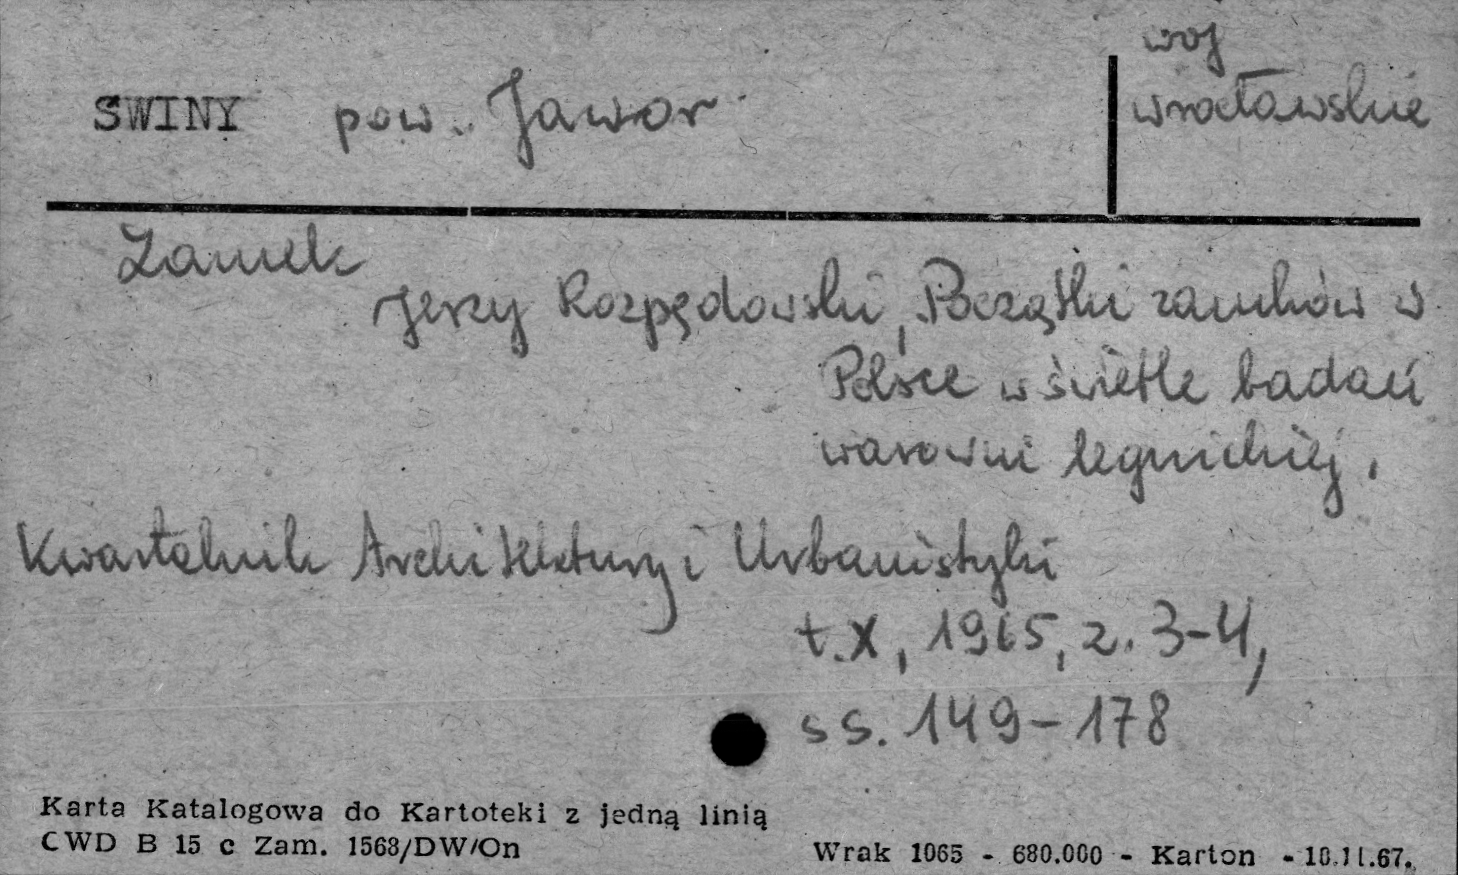 SWINY pow. Jawor
woj
wrocławskie
Zamek
Jerzy Rozpędowski, Początki zamków w
Polsce w świetle badań
warowni legnickiej.
Kwartalnik Architektury i Urbanistyki
t.X, 1965, z. 3-4,
ss. 149-178
Karta Katalogowa do Kartoteki z jedną linią
CWD B 15 c Zam. 1563/DW/On
Wrak 1065 - 680.000 - Karton - 10.11.67.